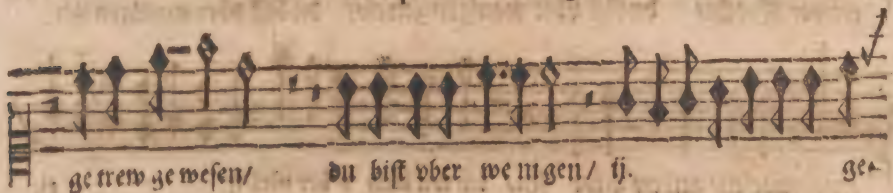 ge trew ge wesen/ du bist vber we nigen/ ij. ge-